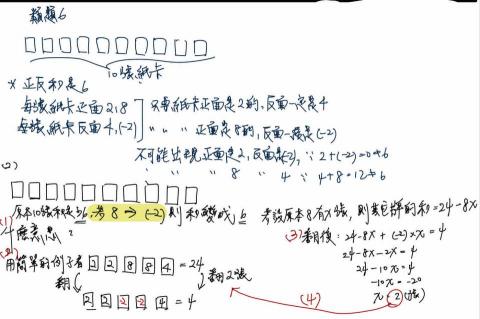 類題6
10張紙卡
* 正反和是6
每張紙卡正面2,8
每張紙卡反面4,(-2)
只要紙卡正面是2的,反面一定是4
〃 〃 〃 正面是8的,反面一定是(-2)
不可能出現正面是2,反面是(-2), ∵ 2+(-2)=0≠6
〃 〃 8 〃 4 ∵ 4+8=12≠6
(2)
原本10張和是36,考 8→(-2) 則和變成 6
(1) 什麼意思?
(2) 用簡單的例子看 2 2 8 8 4 = 24
翻 翻2張
2 2 2 2 4 = 4
考張原本8有x張,則其它牌的和=24-8x
(3) 翻後: 24-8x+(-2)×x=4
24-8x-2x=4
24-10x=4
-10x=-20
x=2(張)
(4)